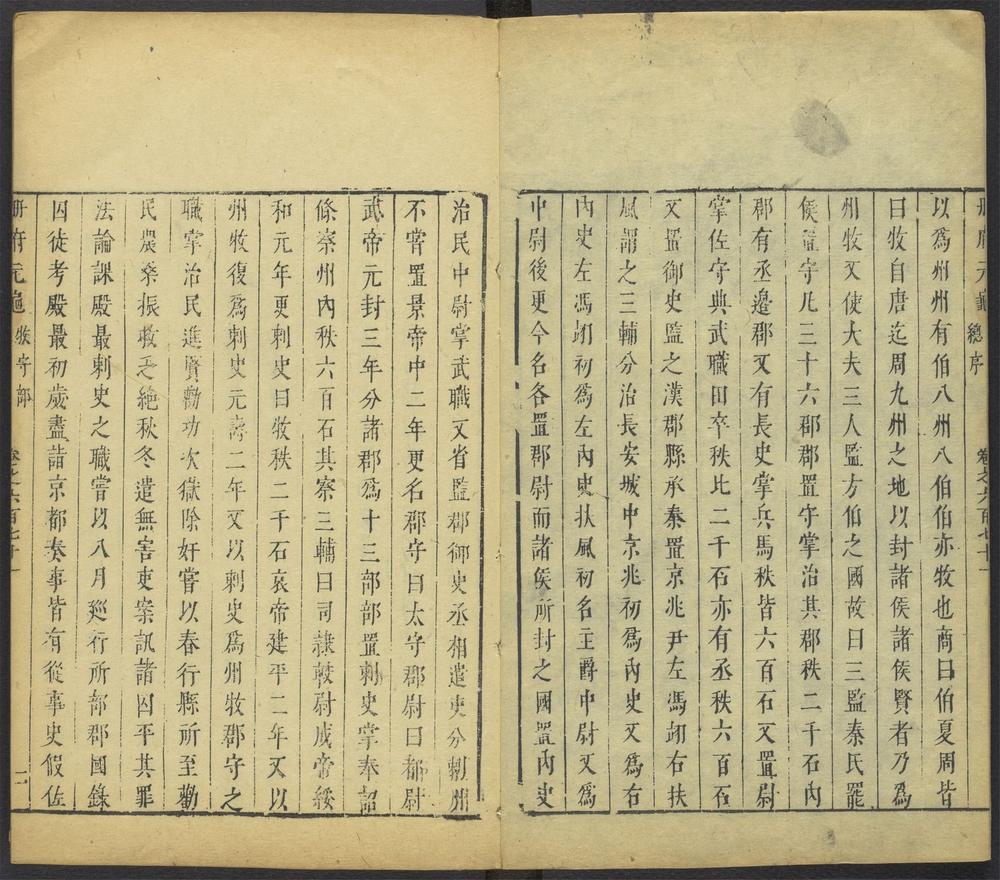 冊府元龜 總序 卷之六百七十一
以爲州州有伯八州八伯伯亦牧也商曰伯夏周皆
曰牧自唐迄周九州之地以封諸侯諸侯賢者乃爲
州牧又使大夫三人監方伯之國故曰三監秦氏罷
侯置守凡三十六郡郡置守掌治其郡秩二千石內
郡有丞邊郡又有長史掌兵馬秩皆六百石又置尉
掌佐守典武職田卒秩比二千石亦有丞秩六百石
又置御史監之漢郡縣承秦置京兆尹左馮翊右扶
風謂之三輔分治長安城中京兆初爲內史又爲右
內史左馮翊初爲左內史扶風初名主爵中尉又爲
中尉後更今名各置郡尉而諸侯所封之國置內史
治民中尉掌武職又省監郡御史丞相遣史分刺州
不嘗置景帝中二年更名郡守曰太守郡尉曰都尉
武帝元封三年分諸郡爲十三部部置刺史掌奉詔
條察州內秩六百石其察三輔曰司隷校尉成帝綏
和元年更刺史曰牧秩二千石哀帝建平二年又以
州牧復爲刺史元壽二年又以刺史爲州牧郡守之
職掌治民進賢勸功次獄除奸嘗以春行縣所至勸
民農桑振救乏絶秋冬遣無害吏案訊諸囚平其罪
法論課殿最刺史之職嘗以八月廵行所部郡國錄
囚徒考殿最初歲盡詣京都奏事皆有從事史假佐
冊府元龜 牧守部 卷之六百七十一 二